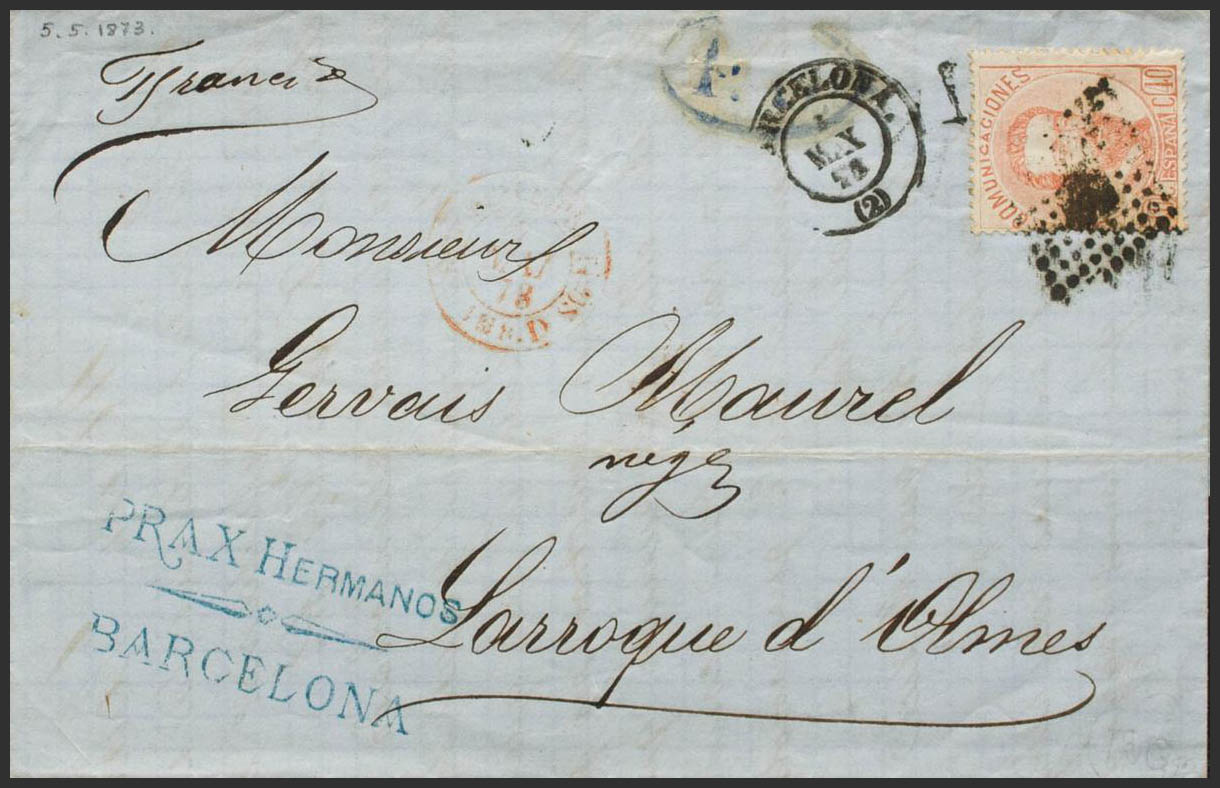 5.5.1873.
Francia
BARCELONA.
MAY
73
(2)
COMUNICACIONES
40
C. ESPAÑA
Monsieur
MAI
73
Gervais Maurel
negt
PRAX HERMANOS
BARCELONA
Larroque d'Olmes